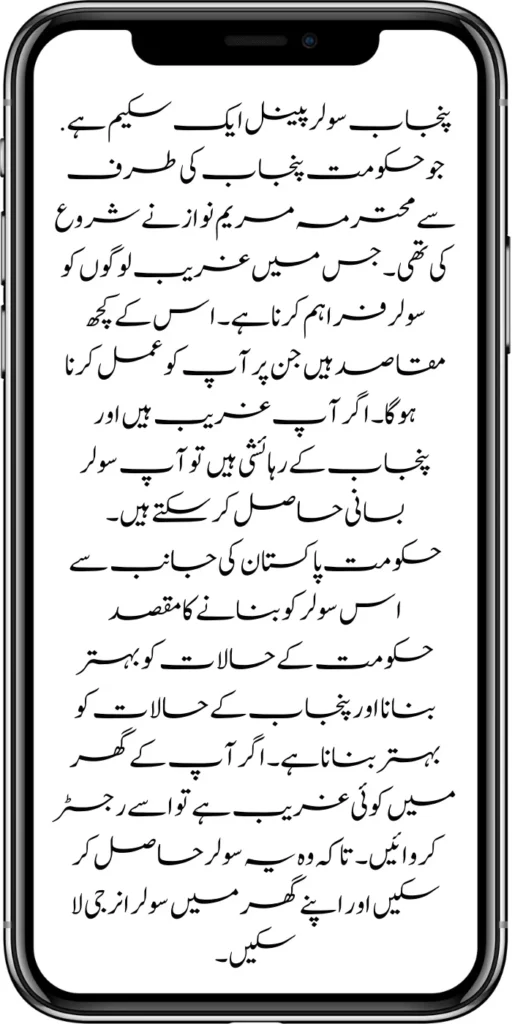 پنجاب سولر پینل ایک سکیم ہے.
جو حکومت پنجاب کی طرف
سے محترمہ مریم نواز نے شروع
کی تھی۔ جس میں غریب لوگوں کو
سولر فراہم کرنا ہے۔ اس کے کچھ
مقاصد ہیں جن پر آپ کو عمل کرنا
ہوگا۔ اگر آپ غریب ہیں اور
پنجاب کے رہائشی ہیں تو آپ سولر
بسانی حاصل کر سکتے ہیں۔
حکومت پاکستان کی جانب سے
اس سولر کو بنانے کا مقصد
حکومت کے حالات کو بہتر
بنانا اور پنجاب کے حالات کو
بہتر بنانا ہے۔ اگر آپ کے گھر
میں کوئی غریب ہے تو اسے رجسٹر
کروائیں۔ تاکہ وہ یہ سولر حاصل کر
سکیں اور اپنے گھر میں سولر انرجی لا
سکیں۔